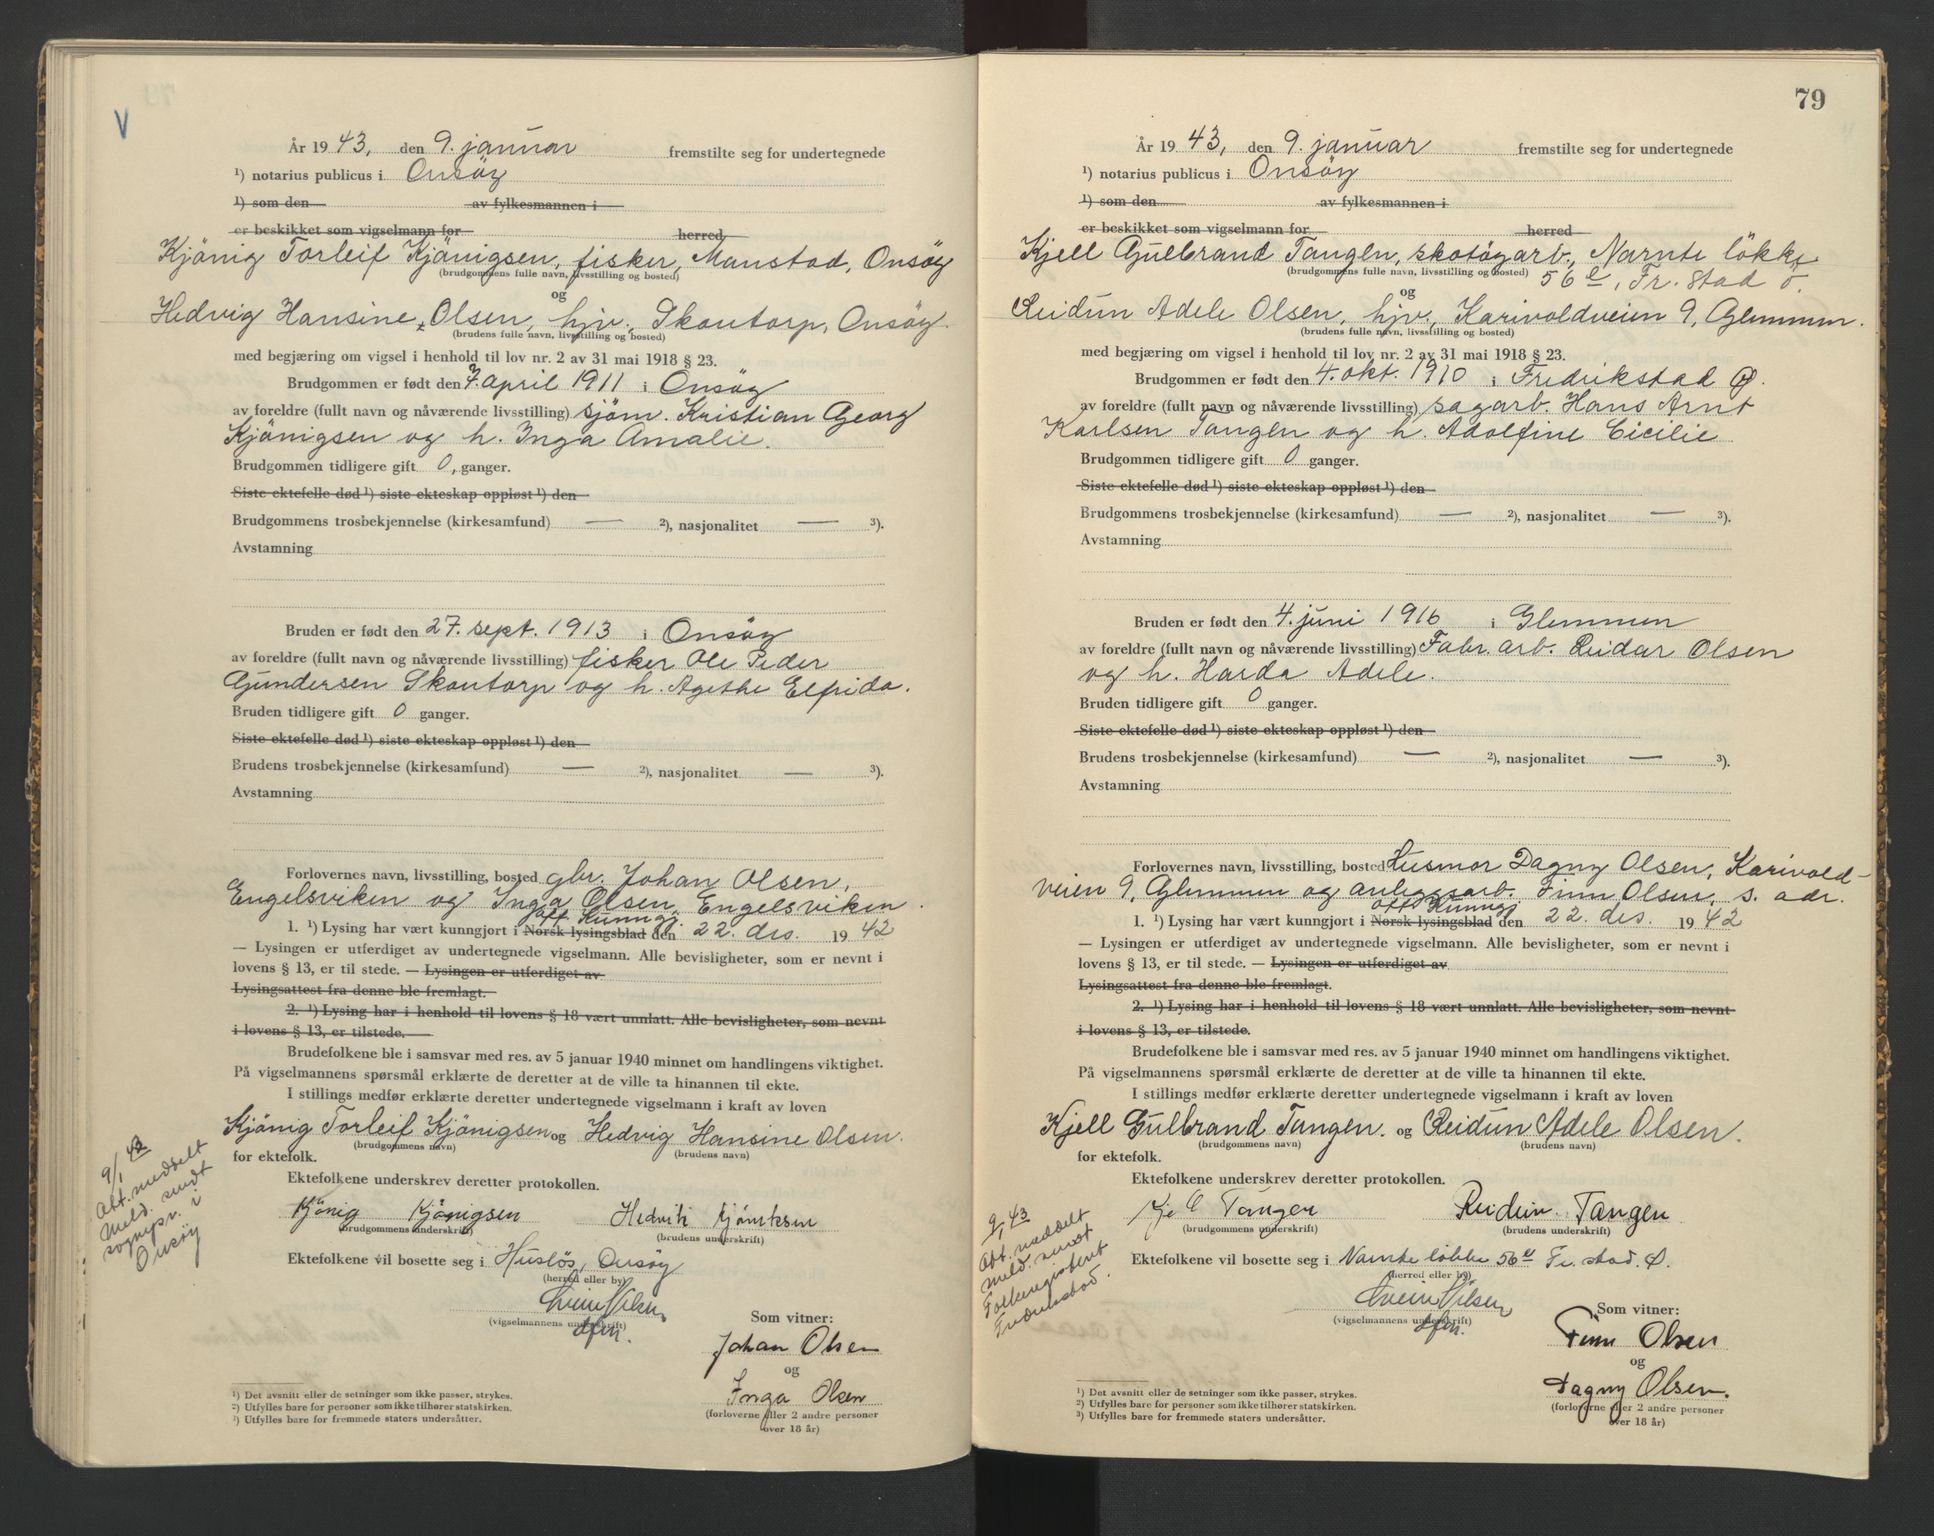 V
År 1943, den 9. januar fremstilte seg for undertegnede
¹) notarius publicus i Onsöy
¹) som den av fylkesmannen i
er beskikket som vigselmann for herred
Kjönig Torleif Kjönigsen, fisker, Manstad, Onsöy
(brudgommens fulle navn, livsstilling og bosted)
og
Hedvig Hansine Olsen, hjv., Skontorp, Onsöy.
(brudens fulle navn, livsstilling og bosted)
med begjæring om vigsel i henhold til lov nr. 2 av 31 mai 1918 § 23.
Brudgommen er født den 7. april 1911 i Onsöy
av foreldre (fullt navn og nåværende livsstilling) sjöm. Kristian Georg
Kjönigsen og h. Inga Amalie.
Brudgommen tidligere gift 0, ganger.
Siste ektefelle død ¹) siste ekteskap oppløst ¹) den
Brudgommens trosbekjennelse (kirkesamfund) — ²), nasjonalitet — ³).
Avstamning
Bruden er født den 27. sept. 1913 i Onsöy
av foreldre (fullt navn og nåværende livsstilling) fisker Ole Peder
Gundersen Skontorp og h. Agethe Elfrida.
Bruden tidligere gift 0 ganger.
Siste ektefelle død ¹) siste ekteskap oppløst ¹) den
Brudens trosbekjennelse (kirkesamfund) — ²), nasjonalitet — ³).
Avstamning
Forlovernes navn, livsstilling, bosted gbr. Johan Olsen,
Engelsviken og Inga Olsen, Engelsviken.
off. Kunngj.
1. ¹) Lysing har vært kunngjort i Norsk lysingsblad den 22. des. 1942
— Lysingen er utferdiget av undertegnede vigselmann. Alle bevisligheter, som er nevnt i
lovens § 13, er til stede. — Lysingen er utferdiget av
Lysingsattest fra denne ble fremlagt.
2. ¹) Lysing har i henhold til lovens § 18 vært unnlatt. Alle bevisligheter, som nevnt
i lovens § 13, er tilstede.
Brudefolkene ble i samsvar med res. av 5 januar 1940 minnet om handlingens viktighet.
På vigselmannens spørsmål erklærte de deretter at de ville ta hinannen til ekte.
I stillings medfør erklærte deretter undertegnede vigselmann i kraft av loven
Kjönig Torleif Kjönigsen og Hedvig Hansine Olsen.
(brudgommens navn) (brudens navn)
for ektefolk.
Ektefolkene underskrev deretter protokollen.
Kjönig Kjönigsen
(brudgommens underskrift) (brudens underskrift)
Ektefolkene vil bosette seg i Huslös, Onsöy
(herred eller by)
(vigselmannens underskrift)
Som vitner:
Johan Olsen
og
Inga Olsen
(forloverne eller 2 andre personer
over 18 år)
9/1 43
Att. meddelt
Meld. sendt
sognepr. i
Onsöy
¹) Det avsnitt eller de setninger som ikke passer, strykes.
²) Utfylles bare for personer som ikke tilhører statskirken.
³) Utfylles bare for fremmede staters undersåtter.
79
År 1943, den 9. januar fremstilte seg for undertegnede
¹) notarius publicus i Onsöy
¹) som den av fylkesmannen i
er beskikket som vigselmann for herred
Kjell Gulbrand Tangen, skotöyarb., Narnte lökke
(brudgommens fulle navn, livsstilling og bosted) 56 e, Fr. stad Ö.
og
Reidun Adele Olsen, hjv., Karivoldveien 9, Glemmen.
(brudens fulle navn, livsstilling og bosted)
med begjæring om vigsel i henhold til lov nr. 2 av 31 mai 1918 § 23.
Brudgommen er født den 4. okt. 1910 i Fredrikstad Ø.
av foreldre (fullt navn og nåværende livsstilling) sagarb. Hans Arnt
Karlsen Tangen og h. Adolfine Cicilie
Brudgommen tidligere gift 0 ganger.
Siste ektefelle død ¹) siste ekteskap oppløst ¹) den
Brudgommens trosbekjennelse (kirkesamfund) — ²), nasjonalitet — ³).
Avstamning
Bruden er født den 4. juni 1916 i Glemmen
av foreldre (fullt navn og nåværende livsstilling) Fabr. arb. Reidar Olsen
og h. Harda Adele.
Bruden tidligere gift 0 ganger.
Siste ektefelle død ¹) siste ekteskap oppløst ¹) den
Brudens trosbekjennelse (kirkesamfund) — ²), nasjonalitet — ³).
Avstamning
Forlovernes navn, livsstilling, bosted Husmor Dagny Olsen, Karivold-
veien 9, Glemmen og anleggsarb. Finn Olsen, s. adr.
off. Kunngj.
1. ¹) Lysing har vært kunngjort i Norsk lysingsblad den 22. des. 1942
— Lysingen er utferdiget av undertegnede vigselmann. Alle bevisligheter, som er nevnt i
lovens § 13, er til stede. — Lysingen er utferdiget av
Lysingsattest fra denne ble fremlagt.
2. ¹) Lysing har i henhold til lovens § 18 vært unnlatt. Alle bevisligheter, som nevnt
i lovens § 13, er tilstede.
Brudefolkene ble i samsvar med res. av 5 januar 1940 minnet om handlingens viktighet.
På vigselmannens spørsmål erklærte de deretter at de ville ta hinannen til ekte.
I stillings medfør erklærte deretter undertegnede vigselmann i kraft av loven
Kjell Gulbrand Tangen. og Reidun Adele Olsen.
(brudgommens navn) (brudens navn)
for ektefolk.
Ektefolkene underskrev deretter protokollen.
Tangen Reidun Tangen
(brudgommens underskrift) (brudens underskrift)
Ektefolkene vil bosette seg i Narnte lökke 56 e Fr. stad. Ø.
(herred eller by)
(vigselmannens underskrift)
Som vitner:
Finn Olsen
og
Dagny Olsen.
(forloverne eller 2 andre personer
over 18 år)
9/1 43
Att. meddelt
Meld. sendt
Folkeregisteret
Fredrikstad.
¹) Det avsnitt eller de setninger som ikke passer, strykes.
²) Utfylles bare for personer som ikke tilhører statskirken.
³) Utfylles bare for fremmede staters undersåtter.